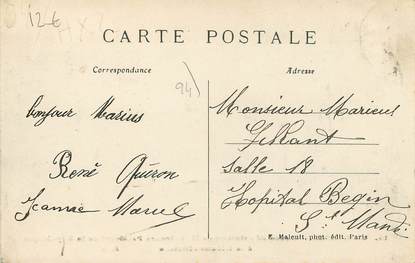 12€
CARTE POSTALE
Correspondance
Adresse
94)
bonjour Marius
René Quiron
Jeanne Marcel
Monsieur Marius
Salle 18
Hopital Begin
St Mandé
E. Malcuit, phot. édit. Paris